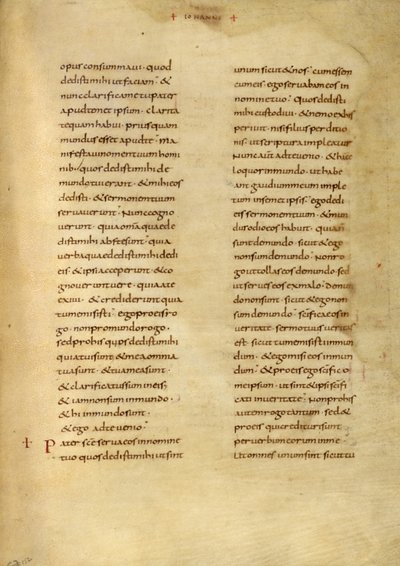 + IOHANNI +
opus consummavi · quod
dedisti mihi ut faciam · &
nunc clarifica me tu pater
apud temet ipsum · clarita
te quam habui · priusquam
mundus esset apud te · ma
nifestavi nomen tuum homi
nib; quos dedisti mihi de
mundo tui erant · & mihi eos
dedisti · & sermonem tuum
servaverunt · Nunc cogno
verunt · quia omnia quae de
disti mihi abs te sunt · quia
verba quae dedisti mihi dedi
eis · & ipsi acceperunt · & co
gnoverunt vere · quia a te
exivi · & crediderunt quia
tu me misisti · ego pro eis ro
go · non pro mundo rogo ·
sed pro his quos dedisti mihi
quia tui sunt · & mea omnia
tua sunt · & tua mea sunt ·
& clarificatus sum in eis ·
& iam non sum in mundo ·
& hi in mundo sunt ·
& ego ad te venio ·
+ Pater sce serva eos in nomine
tuo quos dedisti mihi ut sint
unum sicut & nos · cum essem
cum eis · ego servabam eos in
nomine tuo · quos dedisti
mihi custodivi · & nemo ex his
periit · nisi filius perditio
nis · ut scriptura impleatur
Nunc aut ad te venio · & haec
loquor in mundo · ut habe
ant gaudium meum imple
tum in semet ipsis · ego dedi
eis sermonem tuum · & mun
dus odio eos habuit · quia n
sunt de mundo · sicut & ego
non sum de mundo · Non ro
go ut tollas eos de mundo · sed
ut serves eos ex malo · De mun
do non sunt · sicut & ego non
sum de mundo · scifica eos in
veritate · sermo tuus veritas
est · sicut tu me misisti in mun
dum · & ego misi eos in mun
dum · & pro eis ego scifico
me ipsum · ut sint & ipsi scifi
cati in veritate · Non pro his
autem rogo tantum · sed &
pro eis qui credituri sunt
per verbum eorum in me
Ut omnes unum sint sicut tu